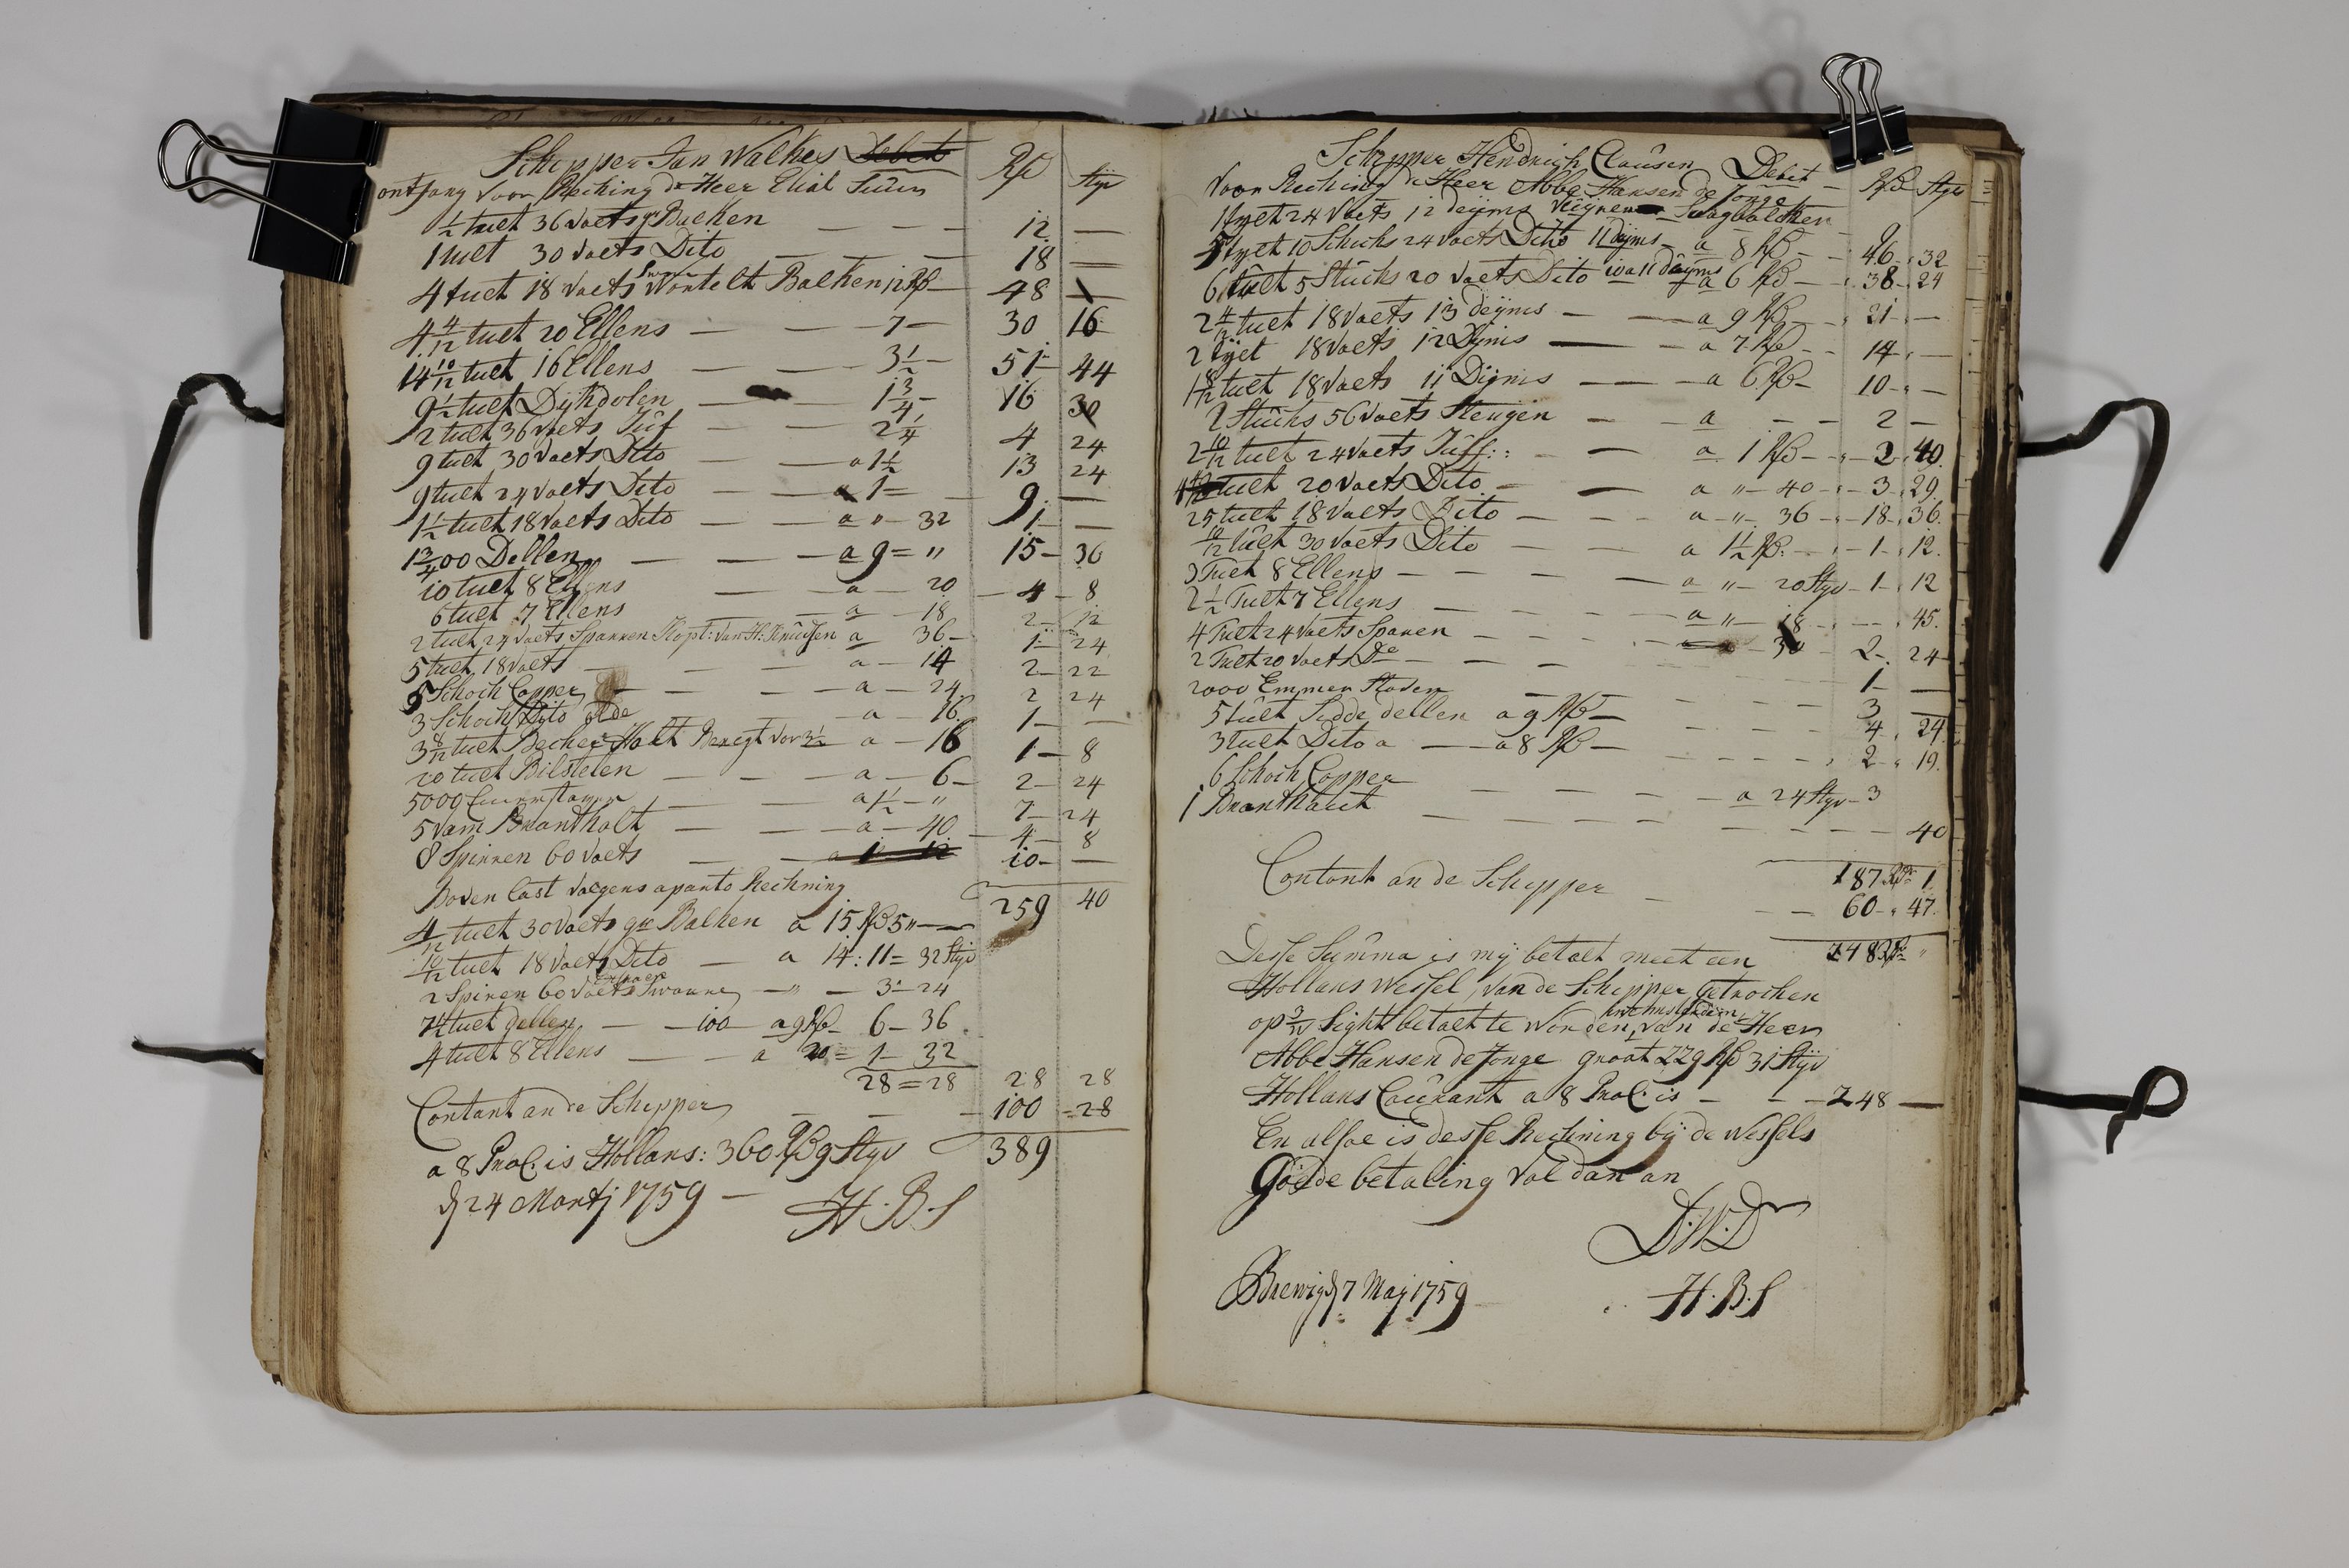 Schipper Jan Walkes Debet Rß Styv
ontfang voor Reching de Heer Elial
½ tuet 36 voets gr Balken — — — 12 —
1 tuet 30 voets Dito — — — 18 —
4 tuet 18 voets Sware Wortelt Balken 12 Rß — 48
4 4/12 tuet 20 Ellens — — 7 — 30 16
14 10/12 tuet 16 Ellens — — 3½ — 51 — 44
9½ tuet Dijkdolen — 1¾ — 16 30
2 tuet 36 voets Juf — — 2¼ 4 24
9 tuet 30 voets Dito — — a 1½ 13 24
9 tuet 24 voets Dito — — a 1 = 9 —
1½ tuet 18 voets Dito — — a " — 32 1 — —
1¾00 Dellen — — a 9 = " 15 — 36
10 tuet 8 Ellens — a — 20 — 4 — 8
6 tuet 7 Ellens — — a — 18 2 — 12
2 tuet 24 voets Sparren Kopt: van H: Knudsen a 36 — 1 — 24
5 tuet 18 voets — — — a — 14 2 — 22
5 Schock Copper — — — a — 24 2 24
3 Schock Dito olde — a — 16 1 — —
3 8/12 tuet Becker Holt Berregt vor 3½ a — 16 1 — 8
20 tuet Bilstelen — — — a — 6 — 2 — 24
5000 — — a 1½ — " 7 — 24
5 vam Brantholt — — — a — 40 — 4 — 8
8 Spirren 60 voets — — a 1 12 10 — —
Boven Last volgens aparto Rechning 259 40
4/12 tuet 30 voets gr Balken a 15 Rß 5 " —
10/12 tuet 18 voets Dito — a 14 : 11 = 32 Styv
2 Spiren 60 voets Swaare — " — 3 — 24
tuet dellen — 100 a 9 Rß 6 — 36
4 tuet 8 Ellens — — a 20 = 1 — 32
28 = 28 28 28
Contant an de Schipper — — — 100 = 28
a 8 Proc. is Hollans: 360 Rß 9 Styv 389
d 24 Martj 1759 — H. B. S
Schipper Hendrich Clausen Debet
voor Rechning de Heer Abbe Hansen de Jonge — Rß Styv
1 tyet 24 voets 12 deyms Sagbalcken
5 tyet 10 Stucks 24 voets Dito 11 dyms — a 8 Rß — 46 32
6 tuet 5 Stucks 20 voets Dito 10 a 11 duyms a 6 Rß — 38 24
2 4/12 tuet 18 voets 13 deyms — — a 9 Rß — 21 —
2 tyet 18 voets 12 Dyms — a 7 Rß — 14 —
1 8/12 tuet 18 voets 11 Dyms — — a 6 Rß — 10 —
2 Stucks 56 voets Stengen — a — — 2 —
2 10/12 tuet 24 voets Juff: : — — a 1 Rß — 2 40
tuet 20 voets Dito — — a " — 40 — 3 29
25 tuet 18 voets Dito — — — a — " — 36 — 18 36
10/12 tuet 30 voets Dito — — a 1½ Rß — 1 — 12
3 Tuet 8 Ellens — — — — a " — 20 Styv — 1 — 12
2½ Tuet 7 Ellens — — — a " — 18 — — 45
4 Tuet 24 voets Sparen — — — 30 2 — 24
2 Tuet 20 voets De — — — 1 —
2000 Emmer Staven — — — 3 —
5 tuet Sidde dellen a 9 Rß — — — 4 24
3 tuet Dito a — a 8 Rß — — 2 — 19
6 Schock Copper — — — a 24 Styv — 3
1 Brantholt — — — 40
187 Rß 1
Contant an de Schipper — — 60 — 47
248 Rß "
Desse Summa is mij betaelt meet een
Hollans Wessel, van de Schipper Getrocken
op Sight betaelt te Worden, van de Heer
Abbe Hansen de Jonge groot 229 Rß 31 Styv
Hollans Courant a 8 Proc. is — — 248 —
En alsoe is desse Rechning bij de Wessels
Goede betaling voldaan an
D. W. D
Brewig d 7 Maj 1759 H. B. S